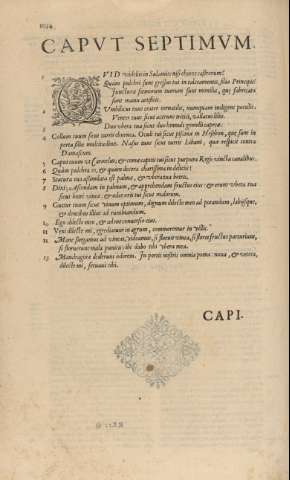 CAPVT SEPTIMVM.
1 QVID videbis in Sulamite nisi choros castrorum?
Quàm pulchri sunt gressus tui in calceamentis, filia Principis!
Iuncturæ femorum tuorum sunt monilia, quæ fabricata
sunt manu artificis.
2 Vmbilicus tuus crater tornatilis, numquam indigens poculis.
Venter tuus sicut aceruus tritici, vallatus liliis.
3 Duo vbera tua sicut duo hinnuli gemelli capreæ.
4 Collum tuum sicut turris eburnea. Oculi tui sicut piscinæ in Hesebon, quæ sunt in
porta filiæ multitudinis. Nasus tuus sicut turris Libani, quæ respicit contra
Damascum.
5 Caput tuum vt Carmelus, & comæ capitis tui sicut purpura Regis vincta canalibus.
6 Quàm pulchra es, & quàm decora charissima in deliciis!
7 Statura tua assimilata est palmæ, & vbera tua botris.
8 Dixi: Ascendam in palmam, & apprehendam fructus eius: & erunt vbera tua
sicut botri vineæ: & odor oris tui sicut malorum.
9 Guttur tuum sicut vinum optimum, dignum dilecto meo ad potandum, labiisque,
& dentibus illius ad ruminandum.
10 Ego dilecto meo, & ad me conuersio eius.
11 Veni dilecte mi, egrediamur in agrum, commoremur in villis.
12 Mane surgamus ad vineas, videamus, si floruit vinea, si flores fructus parturiunt,
si floruerunt mala punica: ibi dabo tibi vbera mea.
13 Mandragoræ dederunt odorem. In portis nostris omnia poma: noua, & vetera,
dilecte mi, seruaui tibi.
CAPI-